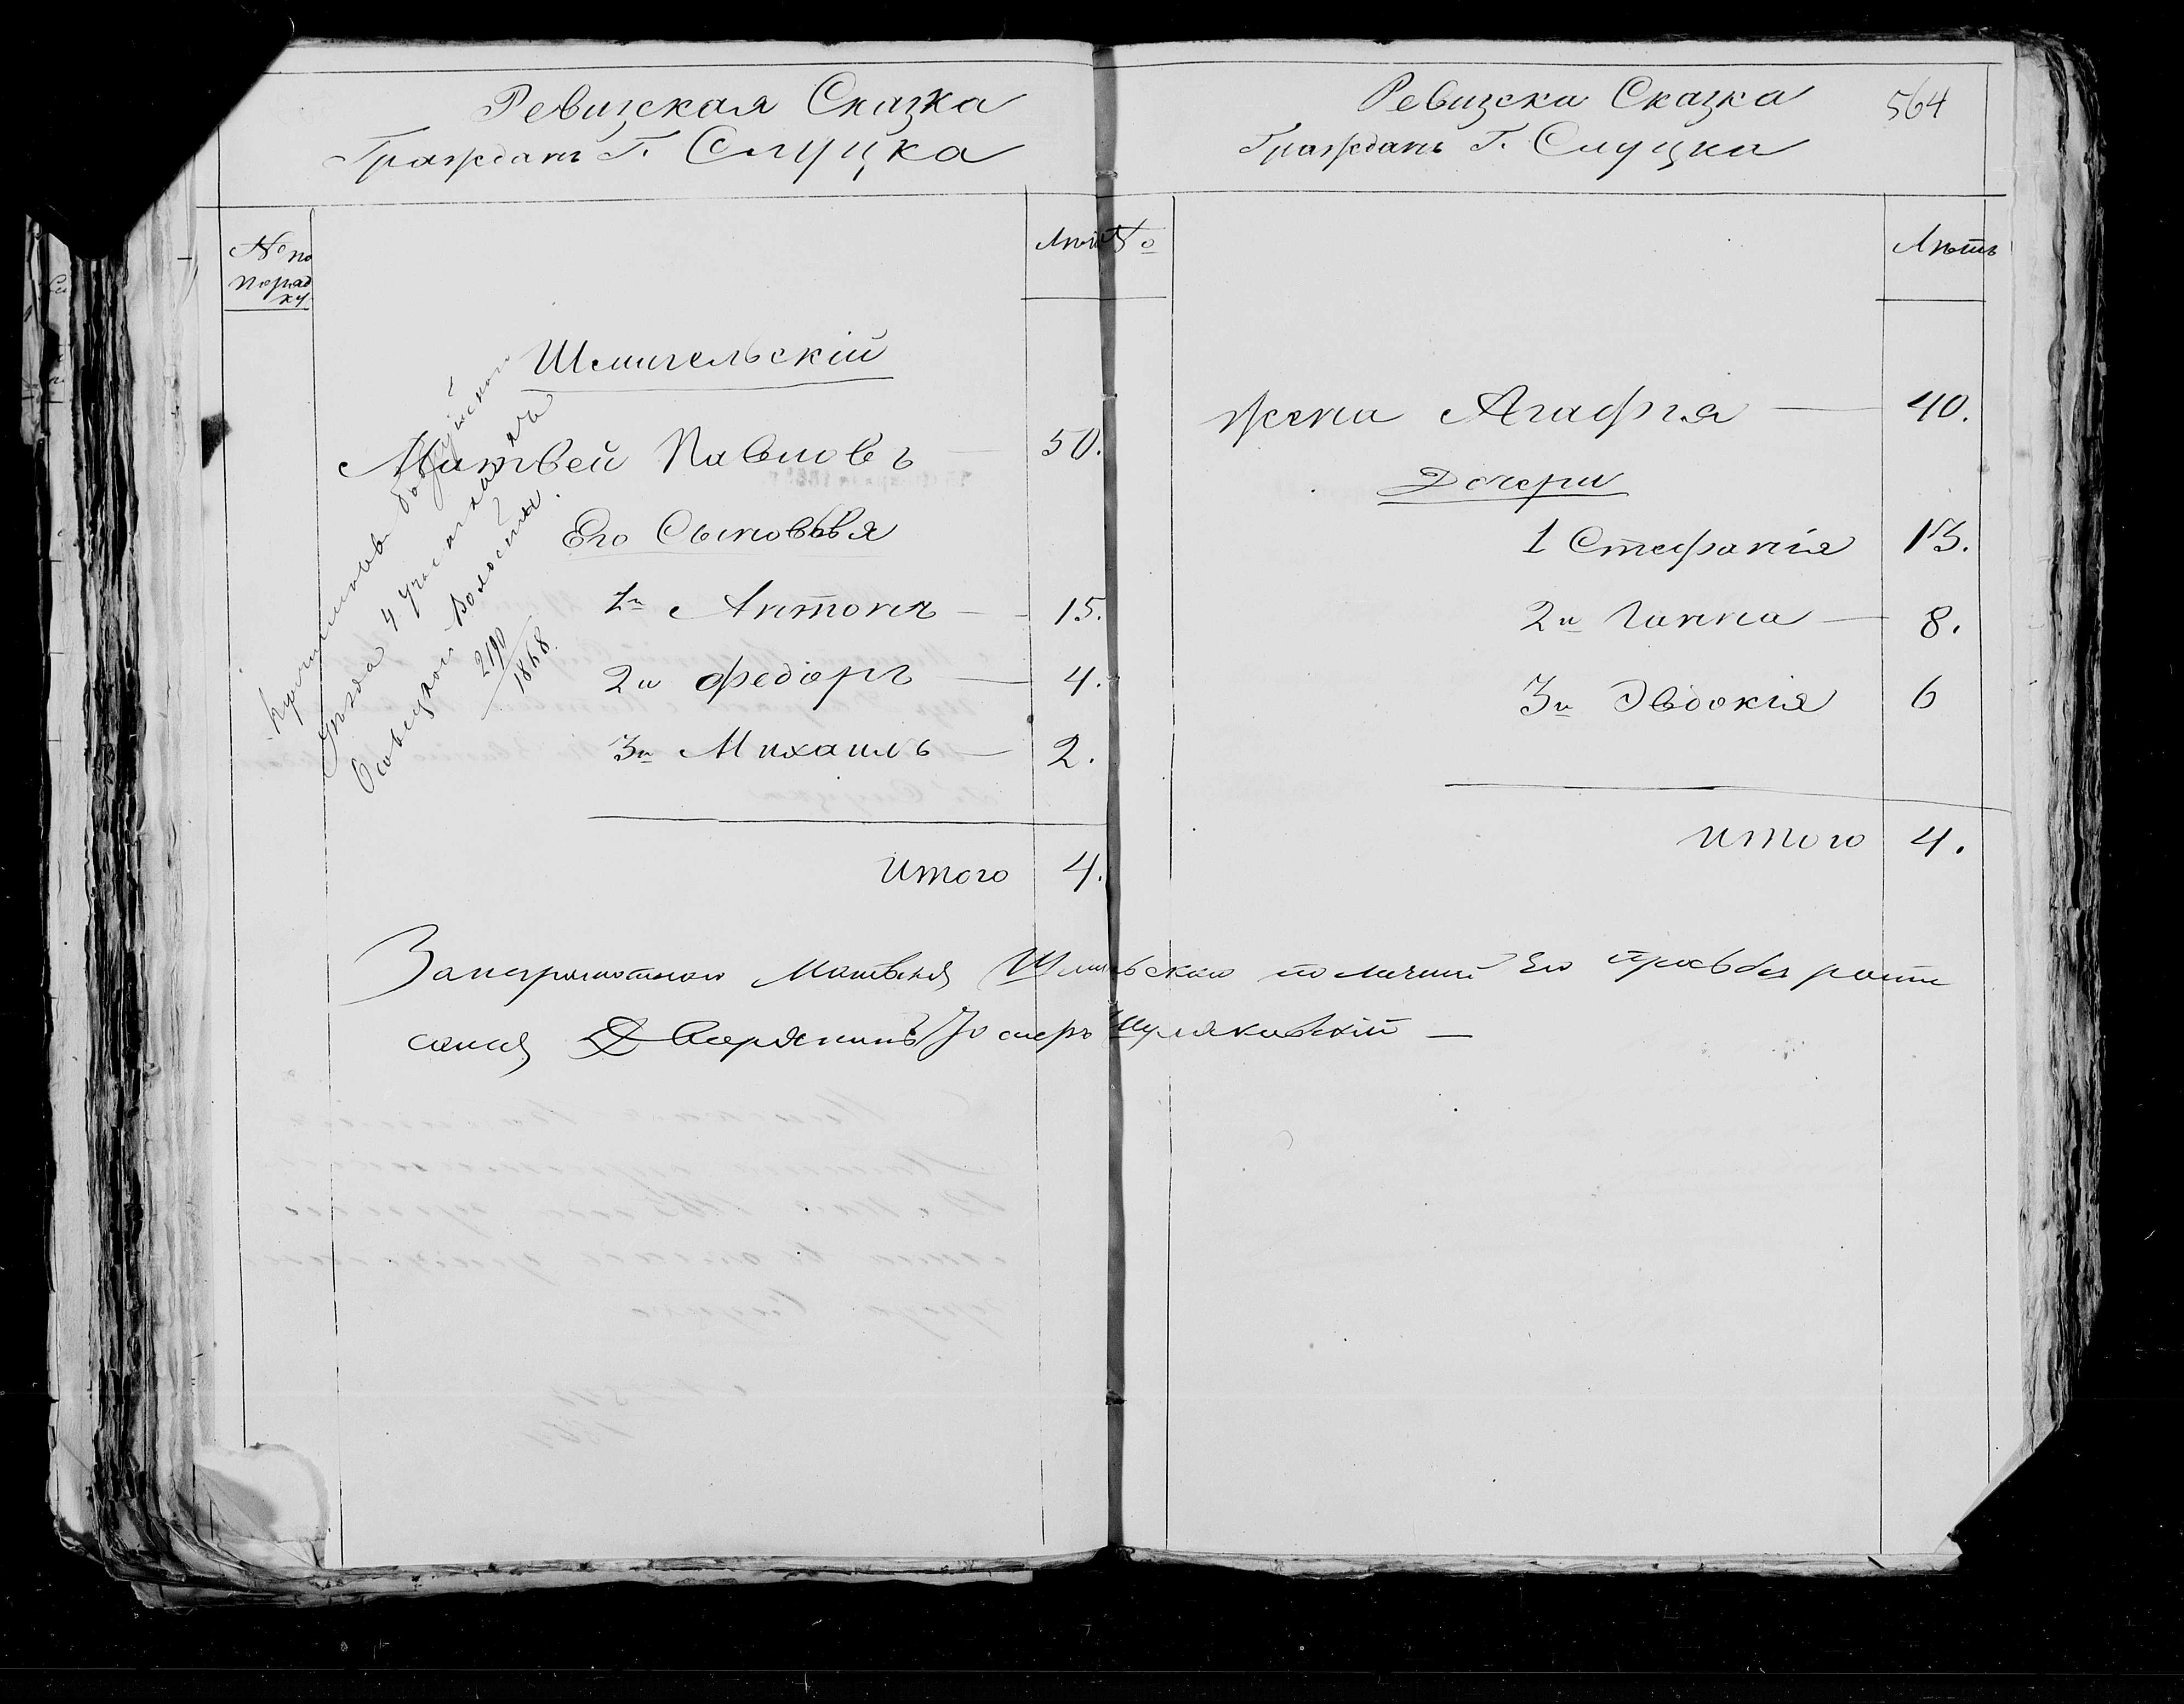 Ревизская Сказка
Граждань Г. Слуцка
№ по
поряд
ку.
Лѣтъ
Шмигельскій
Матвей Павловъ — 50.
Его Сыновья
1й Антонъ — 15.
2й Федіоръ — 4.
3й Михаилъ — 2.
Итого 4.
Бобруйскаго
Уѣзда 4 участка
Волости.
2190
1868.
Ревизска Сказка
Граждань Г. Слуцка
564
№
Лѣтъ
жена Агафія — 40.
Дочери
1 Стефанія 13.
2я Ганна — 8.
3я Эвдокія 6
Итого 4.
За неграмотнаго Матвея Шмигельскаго по личной Его прозьбе роспи
сался Дворянинъ Іосифъ